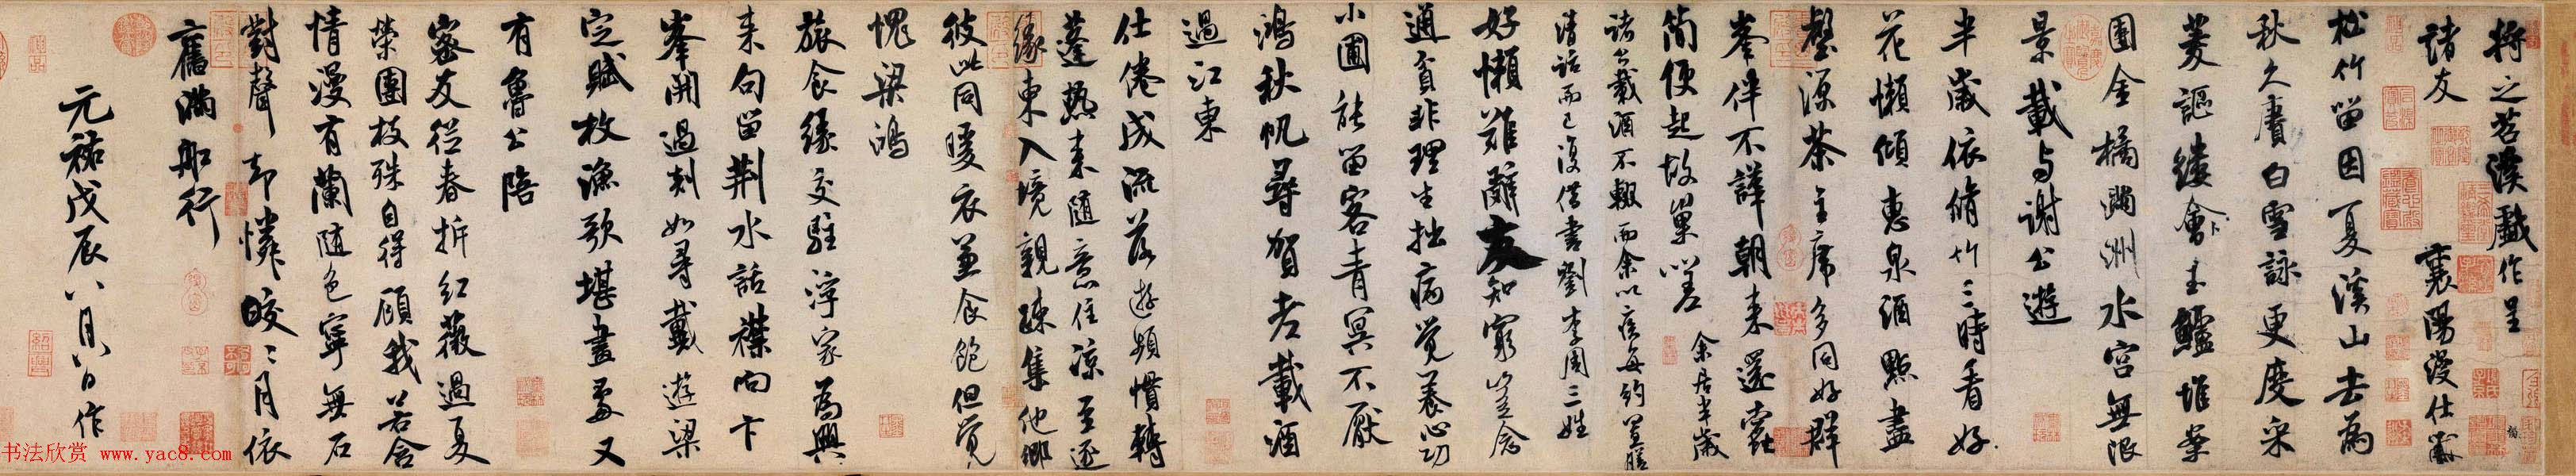 將之苕溪戲作呈
諸友 襄陽漫仕黻
松竹留因夏溪山去為
秋久賡白雪詠更度采
菱謳縷會玉鱸堆案
團金橘滿洲水宮無限
景載与謝公遊
半歲依脩竹三時看好
花懶傾惠泉酒點盡
壑源茶主席多同好群
峯伴不譁朝来還蠹
簡便起故巢嗟 余居半歲
諸公載酒不輟而余以疾每約置膳
清話而已復借書劉李周三姓
好懶難辭友知窮豈念
通貧非理生拙病覺養心功
小圃能留客青冥不厭
鴻秋帆尋賀老載酒
過江東
仕倦成流落遊頻慣轉
蓬熱来隨意住涼至逐
緣東入境親疎集他鄉
彼此同暖衣兼食飽但覺
愧梁鴻
旅食緣交駐浮家為興
来句留荆水話襟向卞
峯開過剡如尋戴遊梁
定賦枚漁歌堪畫處又
有魯公陪
密友從春拆紅薇過夏
榮團枝殊自得顧我若含
情漫有蘭隨色寧無石
對聲却憐皎皎月依
舊滿舡行
元祐戊辰八月八日作
书法欣赏 www.yac8.com